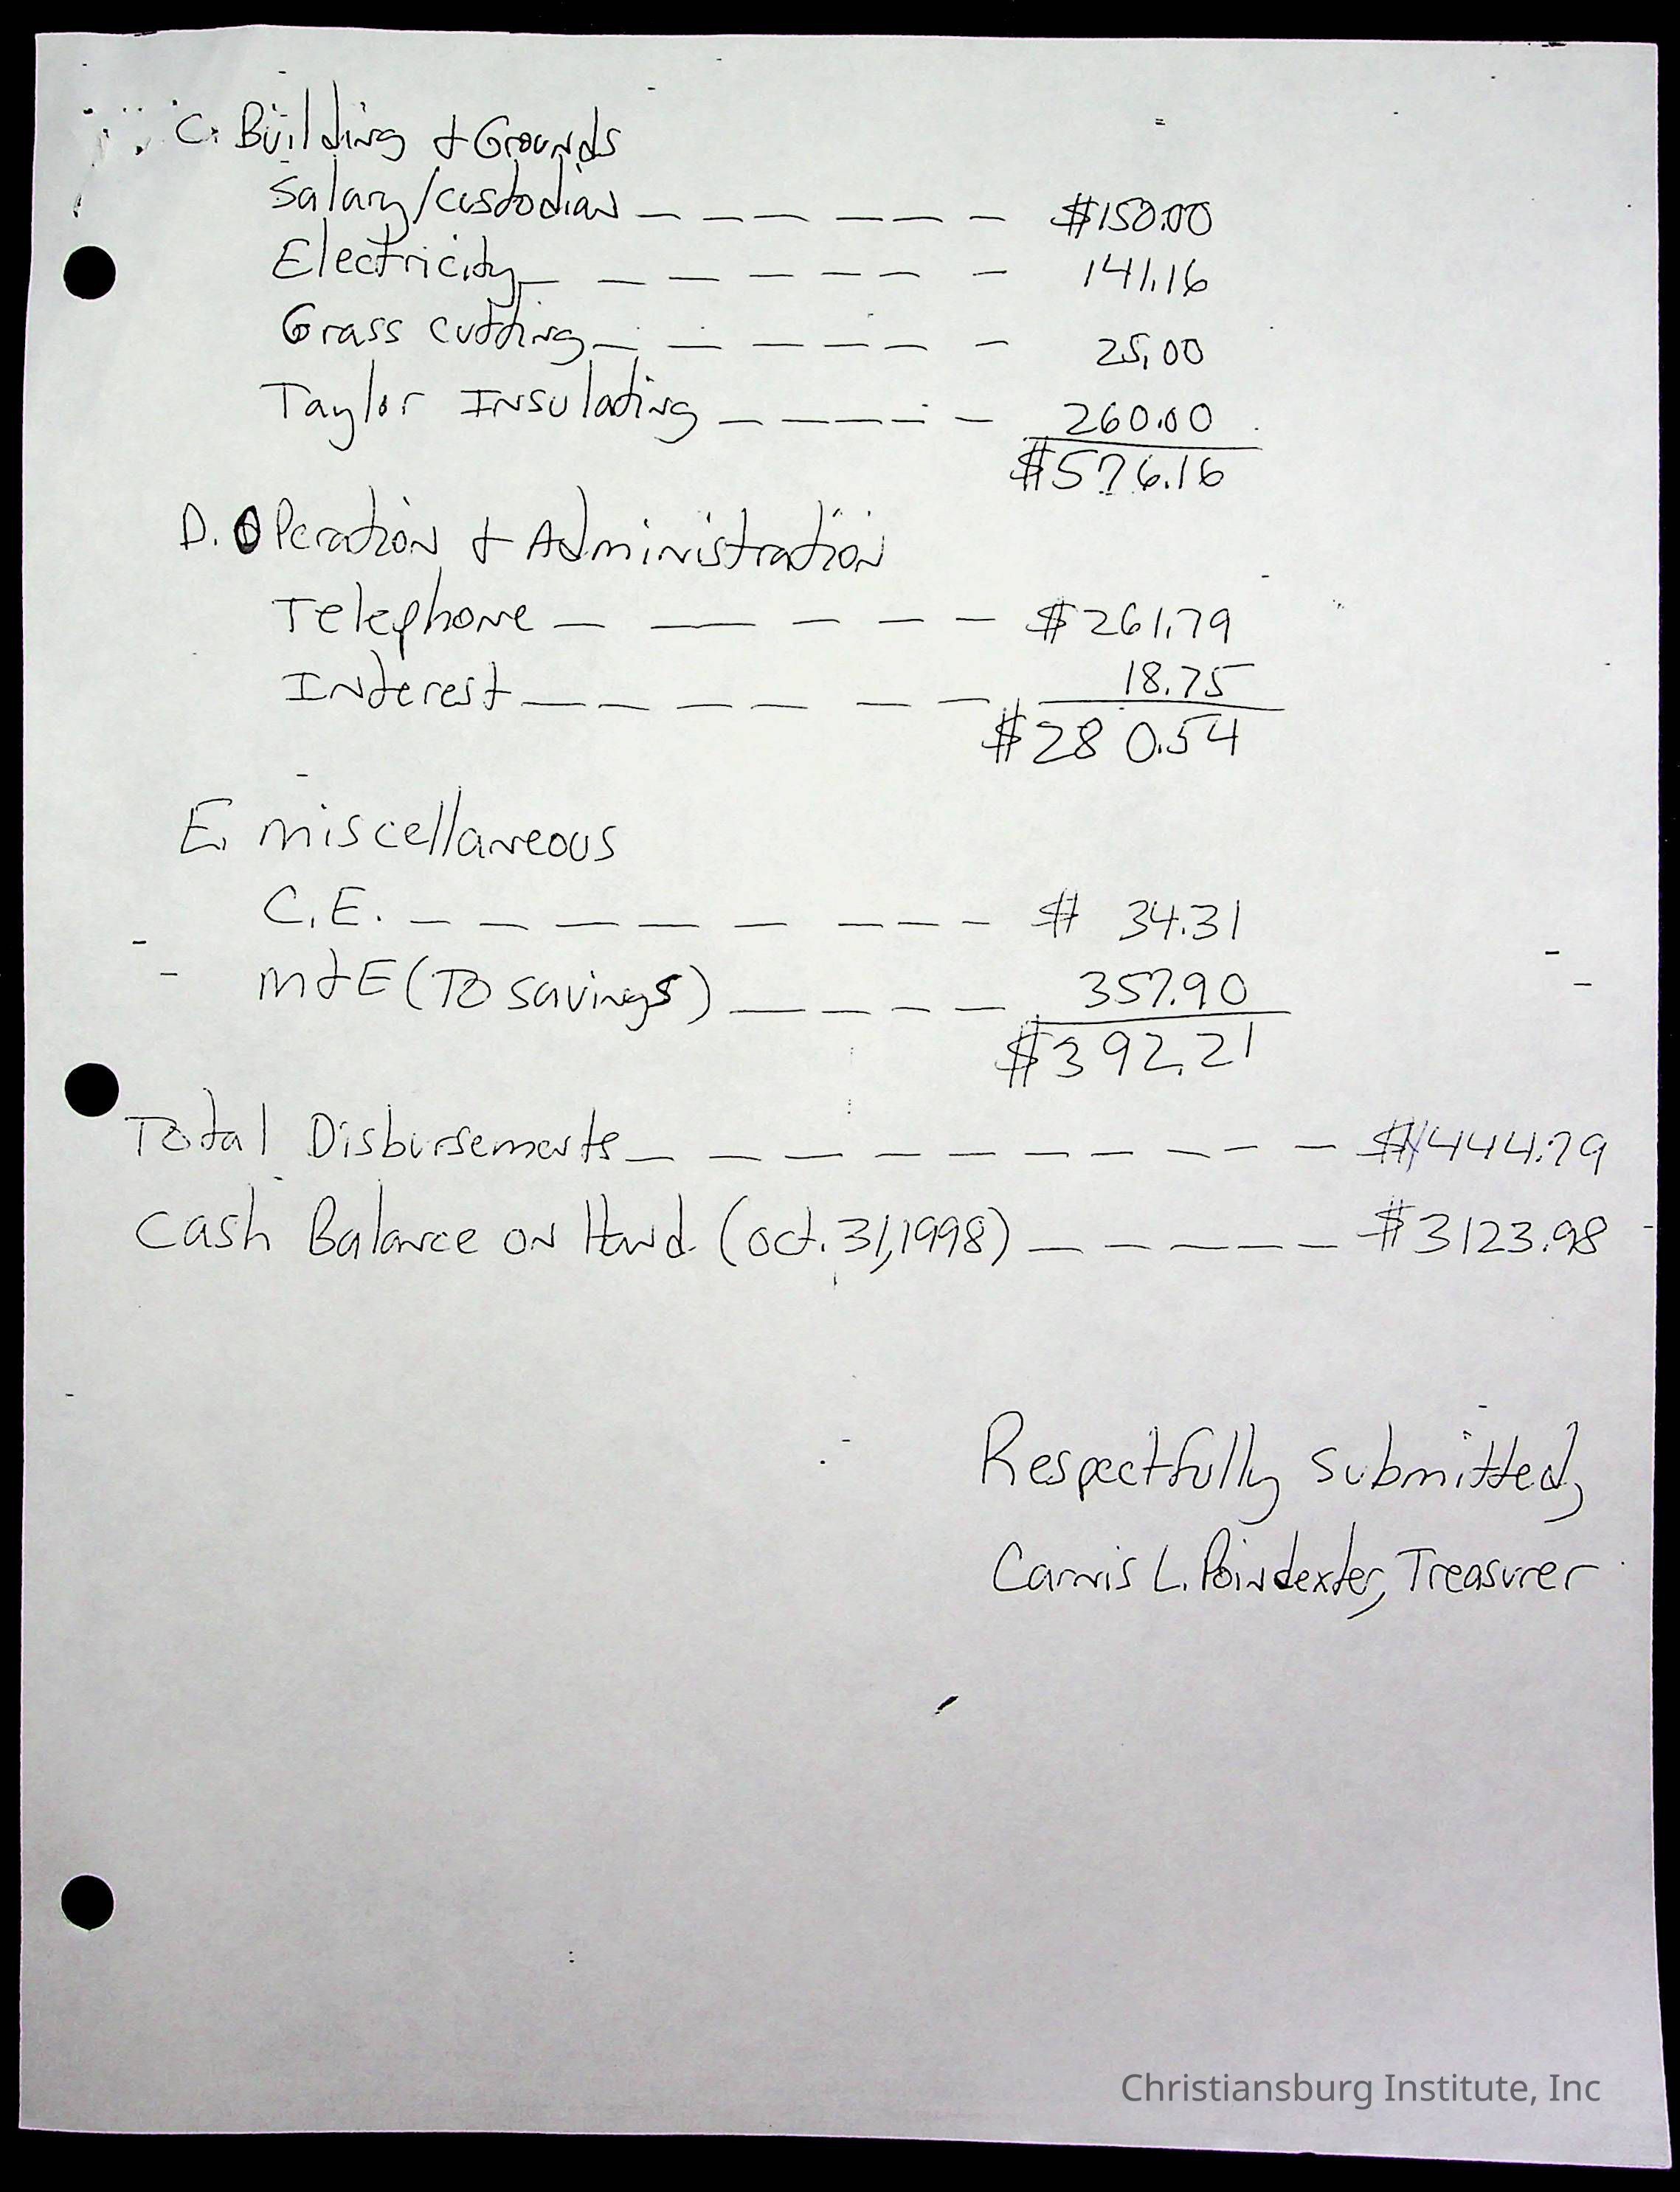 C. Building & Grounds
Salary/custodian — — — — — — $150.00
Electricity — — — — — — 141.16
Grass cutting — — — — — — 25.00
Taylor Insulating — — — — — 260.00
$576.16
D. Operation & Administration
Telephone — — — — — $261.79
Interest — — — — — — 18.75
$280.54
E. miscellaneous
C.E. — — — — — — — — $ 34.31
M&E (To savings) — — — — 357.90
$392.21
Total Disbursements — — — — — — — — — — $1444.79
Cash Balance on Hand (oct. 31, 1998) — — — — — $3123.98
Respectfully submitted,
Carnis L. Poindexter, Treasurer
Christiansburg Institute, Inc